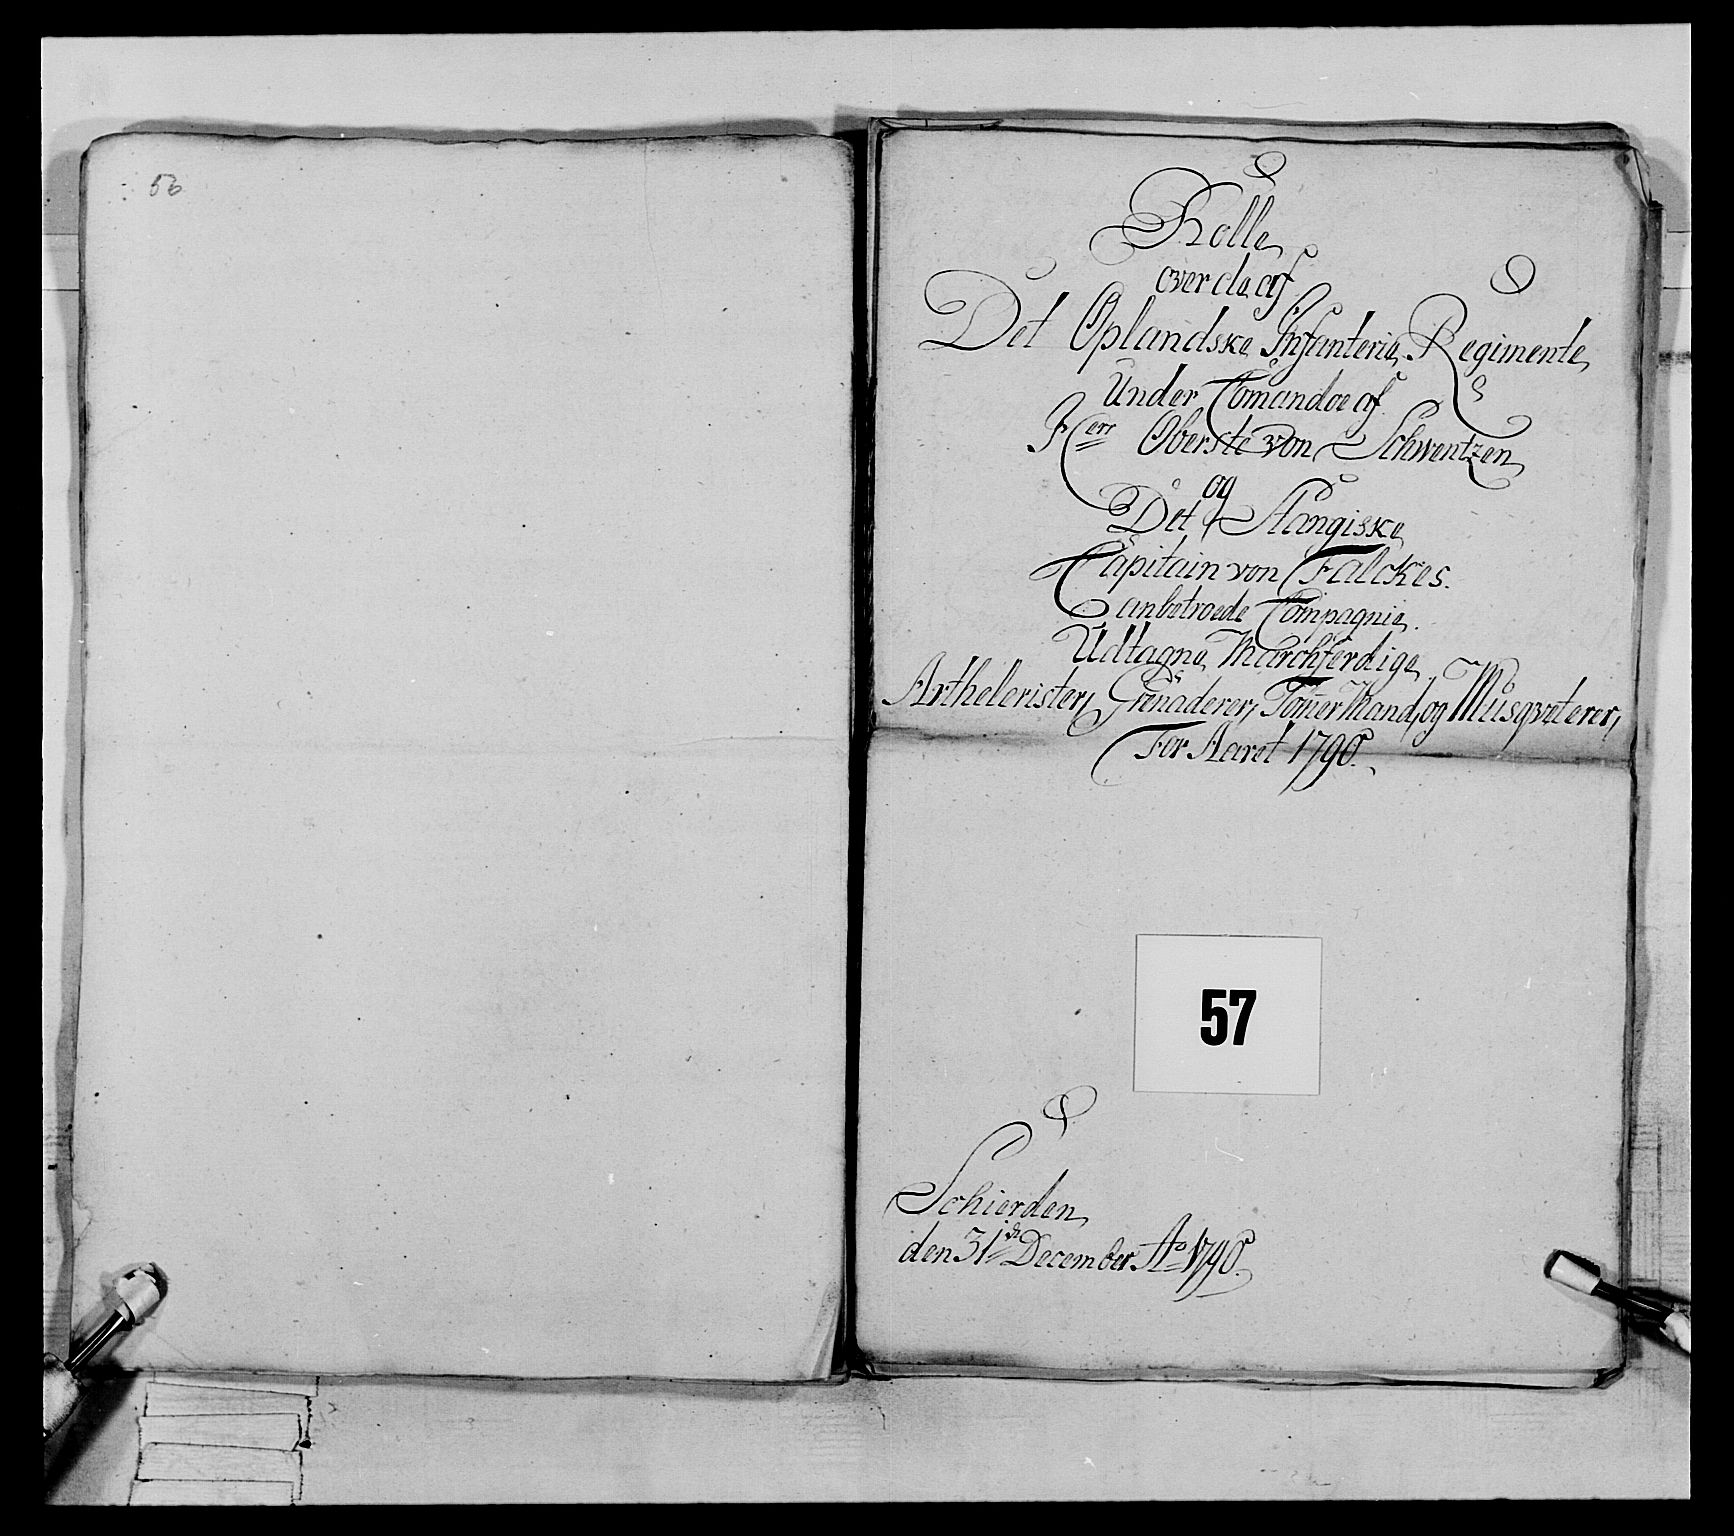 56
Rolle
over de af
Det Oplandske Infanterie Regimente
Under Comandoe af
Herr Oberste von Schwentzen
og
Det Stangiske
Capitain von Falckes.
anbetroede Compagnie.
Udtagne Marchferdige
Arthelerister, Grenaderer, Tømmer Mand, og Musqveterer,
For Aaret 1790.
57
Schierden
den 31te December Ao 1790.